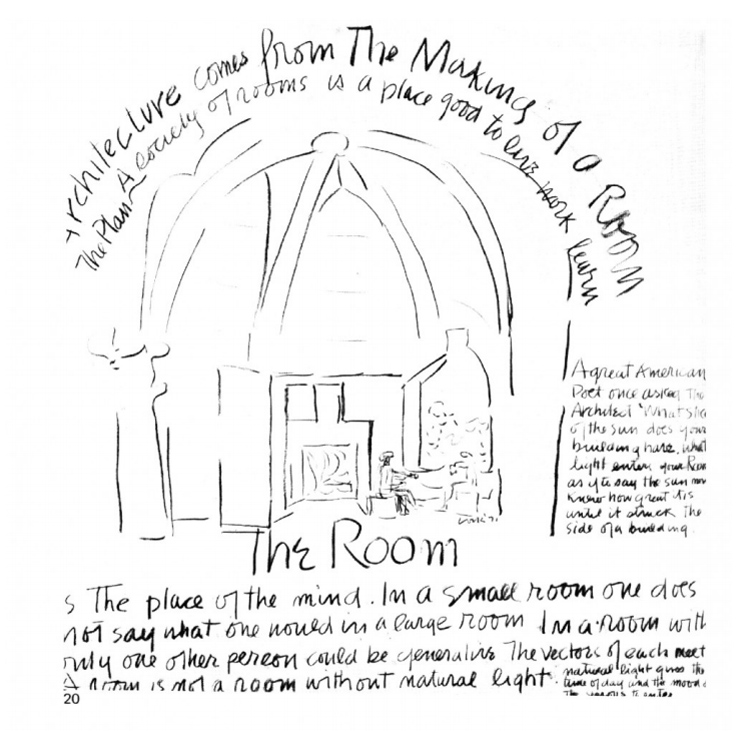 Architecture comes from The Making of a Room
The Plan A society of rooms is a place good to live work learn
A great American
Poet once asked The
Architect 'What slic
of the sun does your
building have. what
light enters your Room
as if to say the sun
knew how great it is
until it struck The
side of a building.
The Room
s The place of the mind. In a small room one does
not say what one would in a large room In a room with
only one other person could be generative The vectors of each meet
A room is not a room without natural light
natural light gives the
time of day and the mood
20